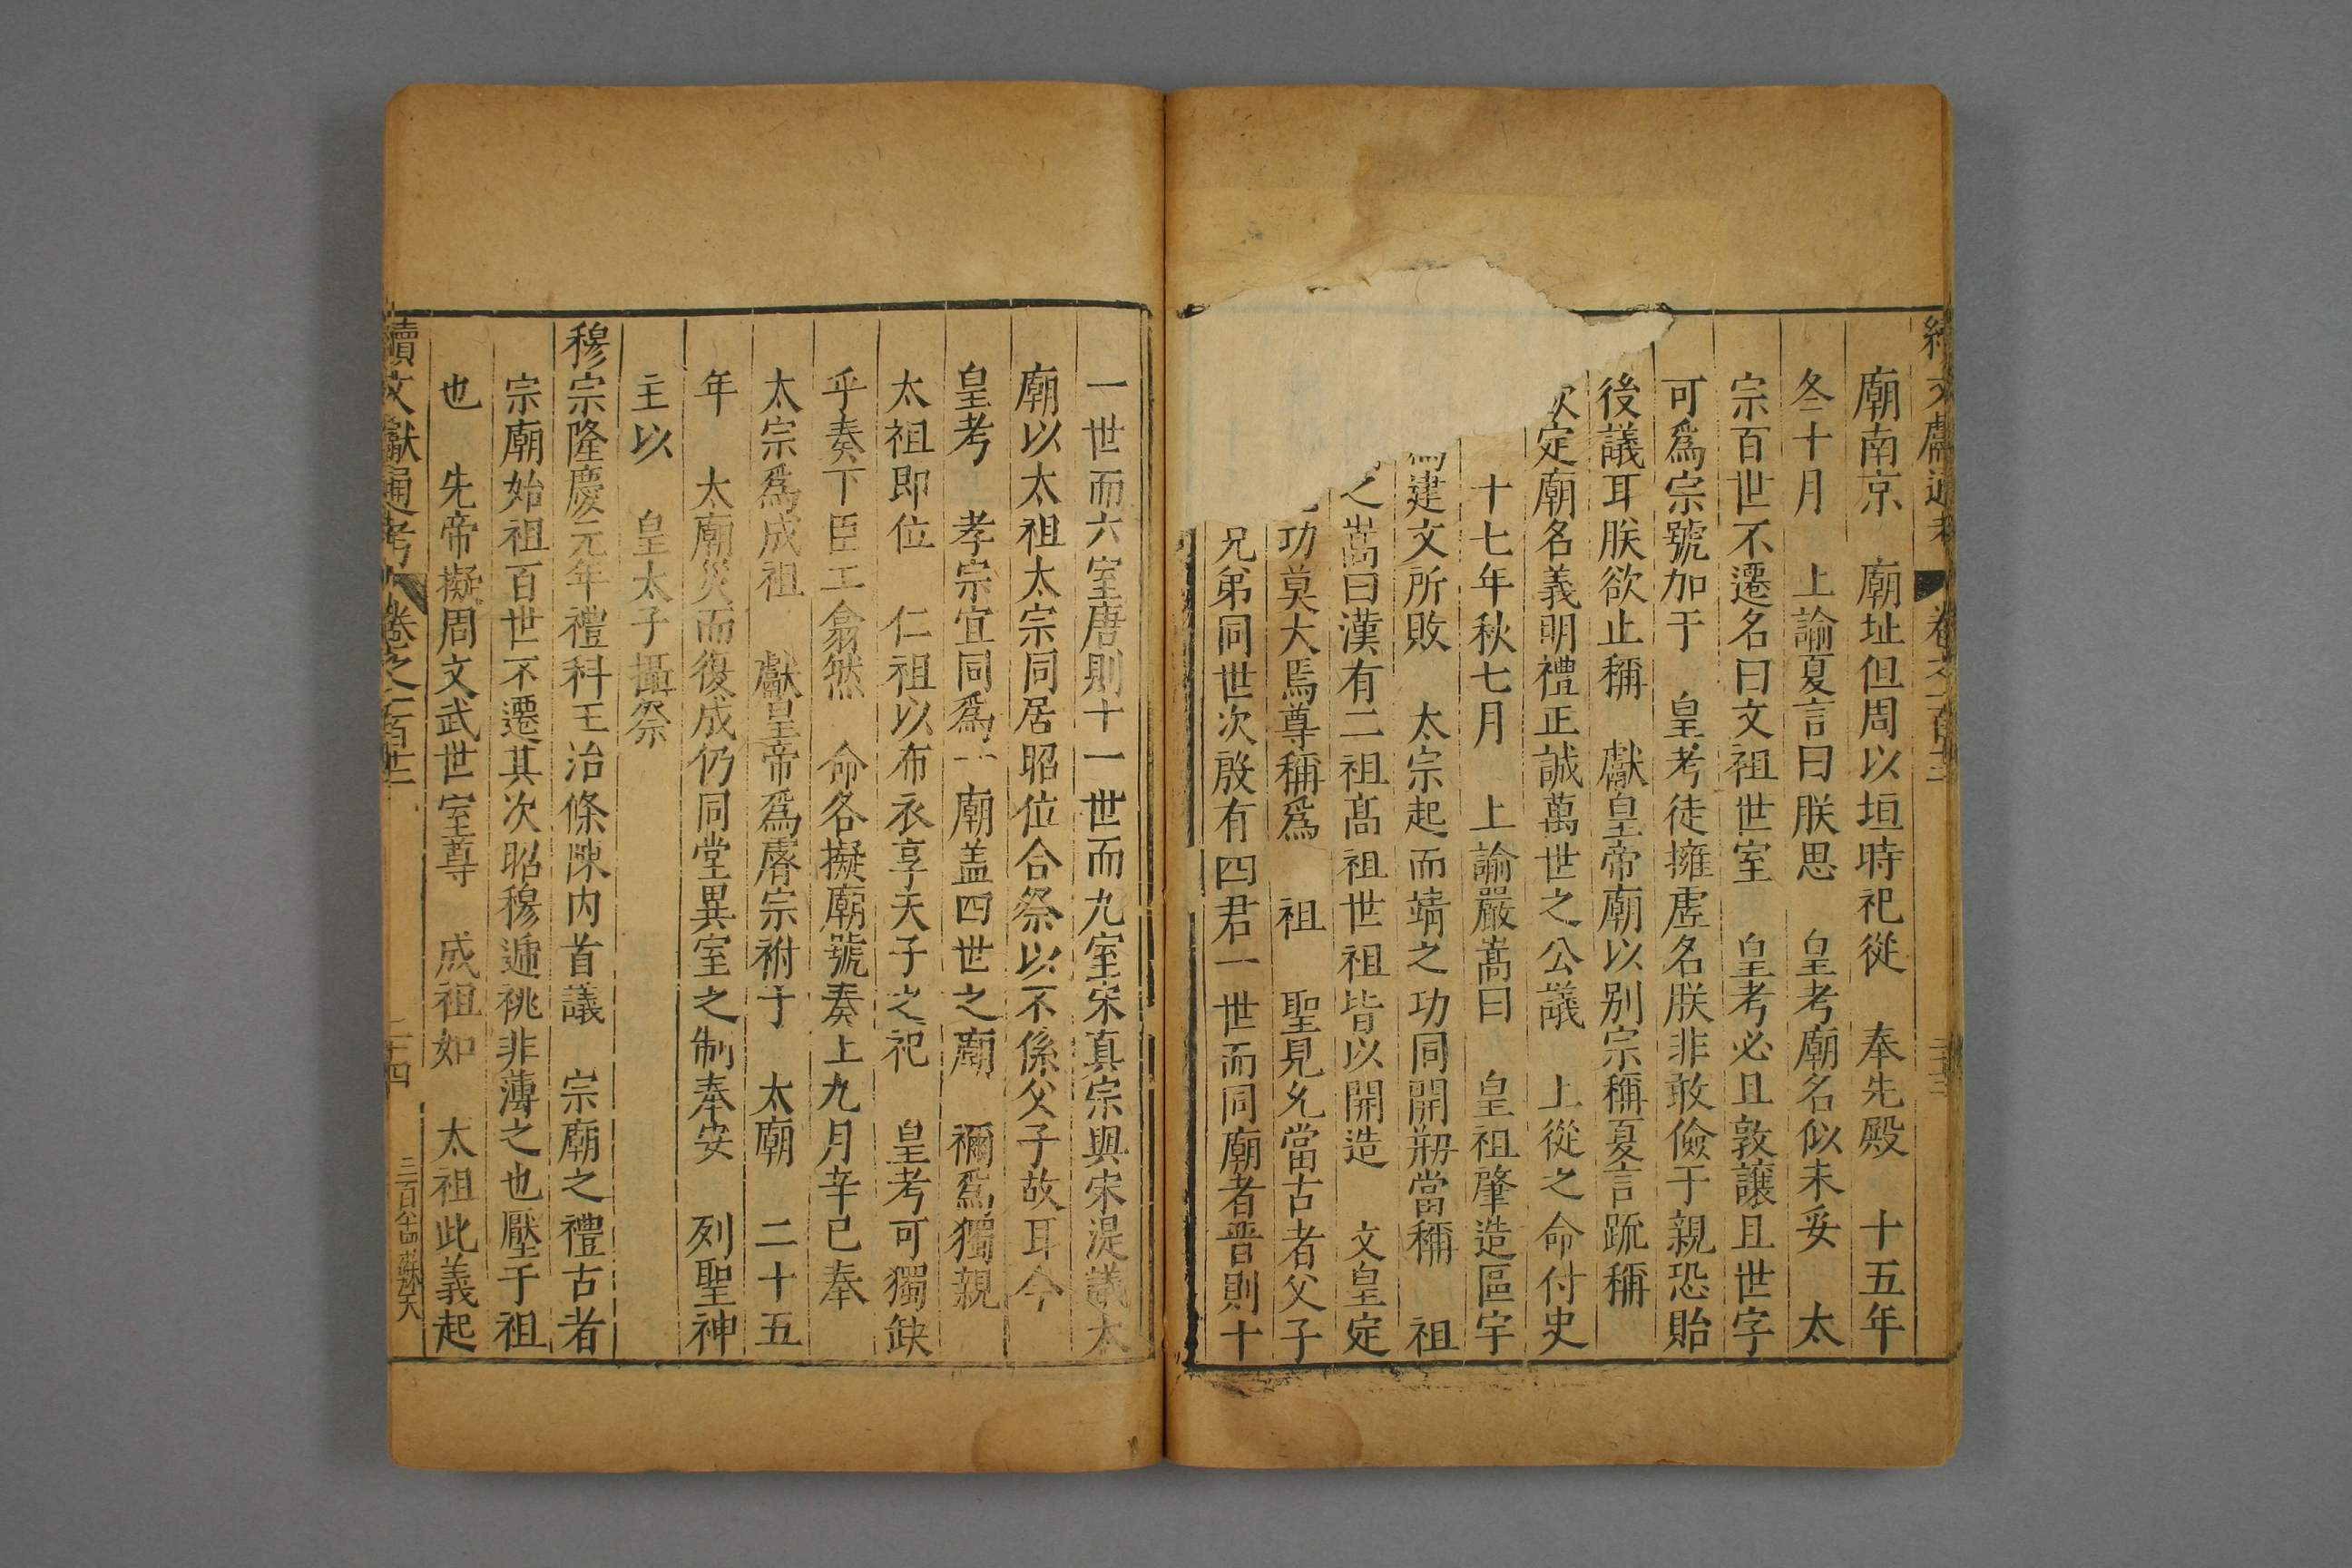 續文獻通考 卷之一百十三 二十三
廟南京 廟址但周以垣時祀從 奉先殿 十五年
冬十月 上諭夏言曰朕思 皇考廟名似未妥 太
宗百世不遷名曰文祖世室 皇考必且敦讓且世字
可爲宗號加于 皇考徒擁虛名朕非敢儉于親恐貽
後議耳朕欲止稱 獻皇帝廟以别宗稱夏言䟽稱
定廟名義明禮正誠萬世之公議 上從之命付史
十七年秋七月 上諭嚴嵩曰 皇祖肇造區宇
建文所敗 太宗起而靖之功同開剏當稱 祖
之嵩曰漢有二祖髙祖世祖皆以開造 文皇定
功莫大焉尊稱爲 祖 聖見允當古者父子
兄弟同世次殷有四君一世而同廟者晋則十
一世而六室唐則十一世而九室宋真宗與宋湜議太
廟以太祖太宗同居昭位合祭以不係父子故耳今
皇考 孝宗宜同爲一 廟盖四世之廟 禰爲獨親
太祖即位 仁祖以布衣享天子之祀 皇考可獨缺
乎奏下臣工翕然 命各擬廟號奏上九月辛巳奉
太宗爲成祖 獻皇帝爲睿宗祔于 太廟 二十五
年 太廟災而復成仍同堂異室之制奉安 列聖神
主以 皇太子攝祭
穆宗隆慶元年禮科王治條陳内首議 宗廟之禮古者
宗廟始祖百世不遷其次昭穆遞祧非薄之也壓于祖
也 先帝擬周文武世室尊 成祖如 太祖此義起
續文獻通考 卷之一百十三 二十四